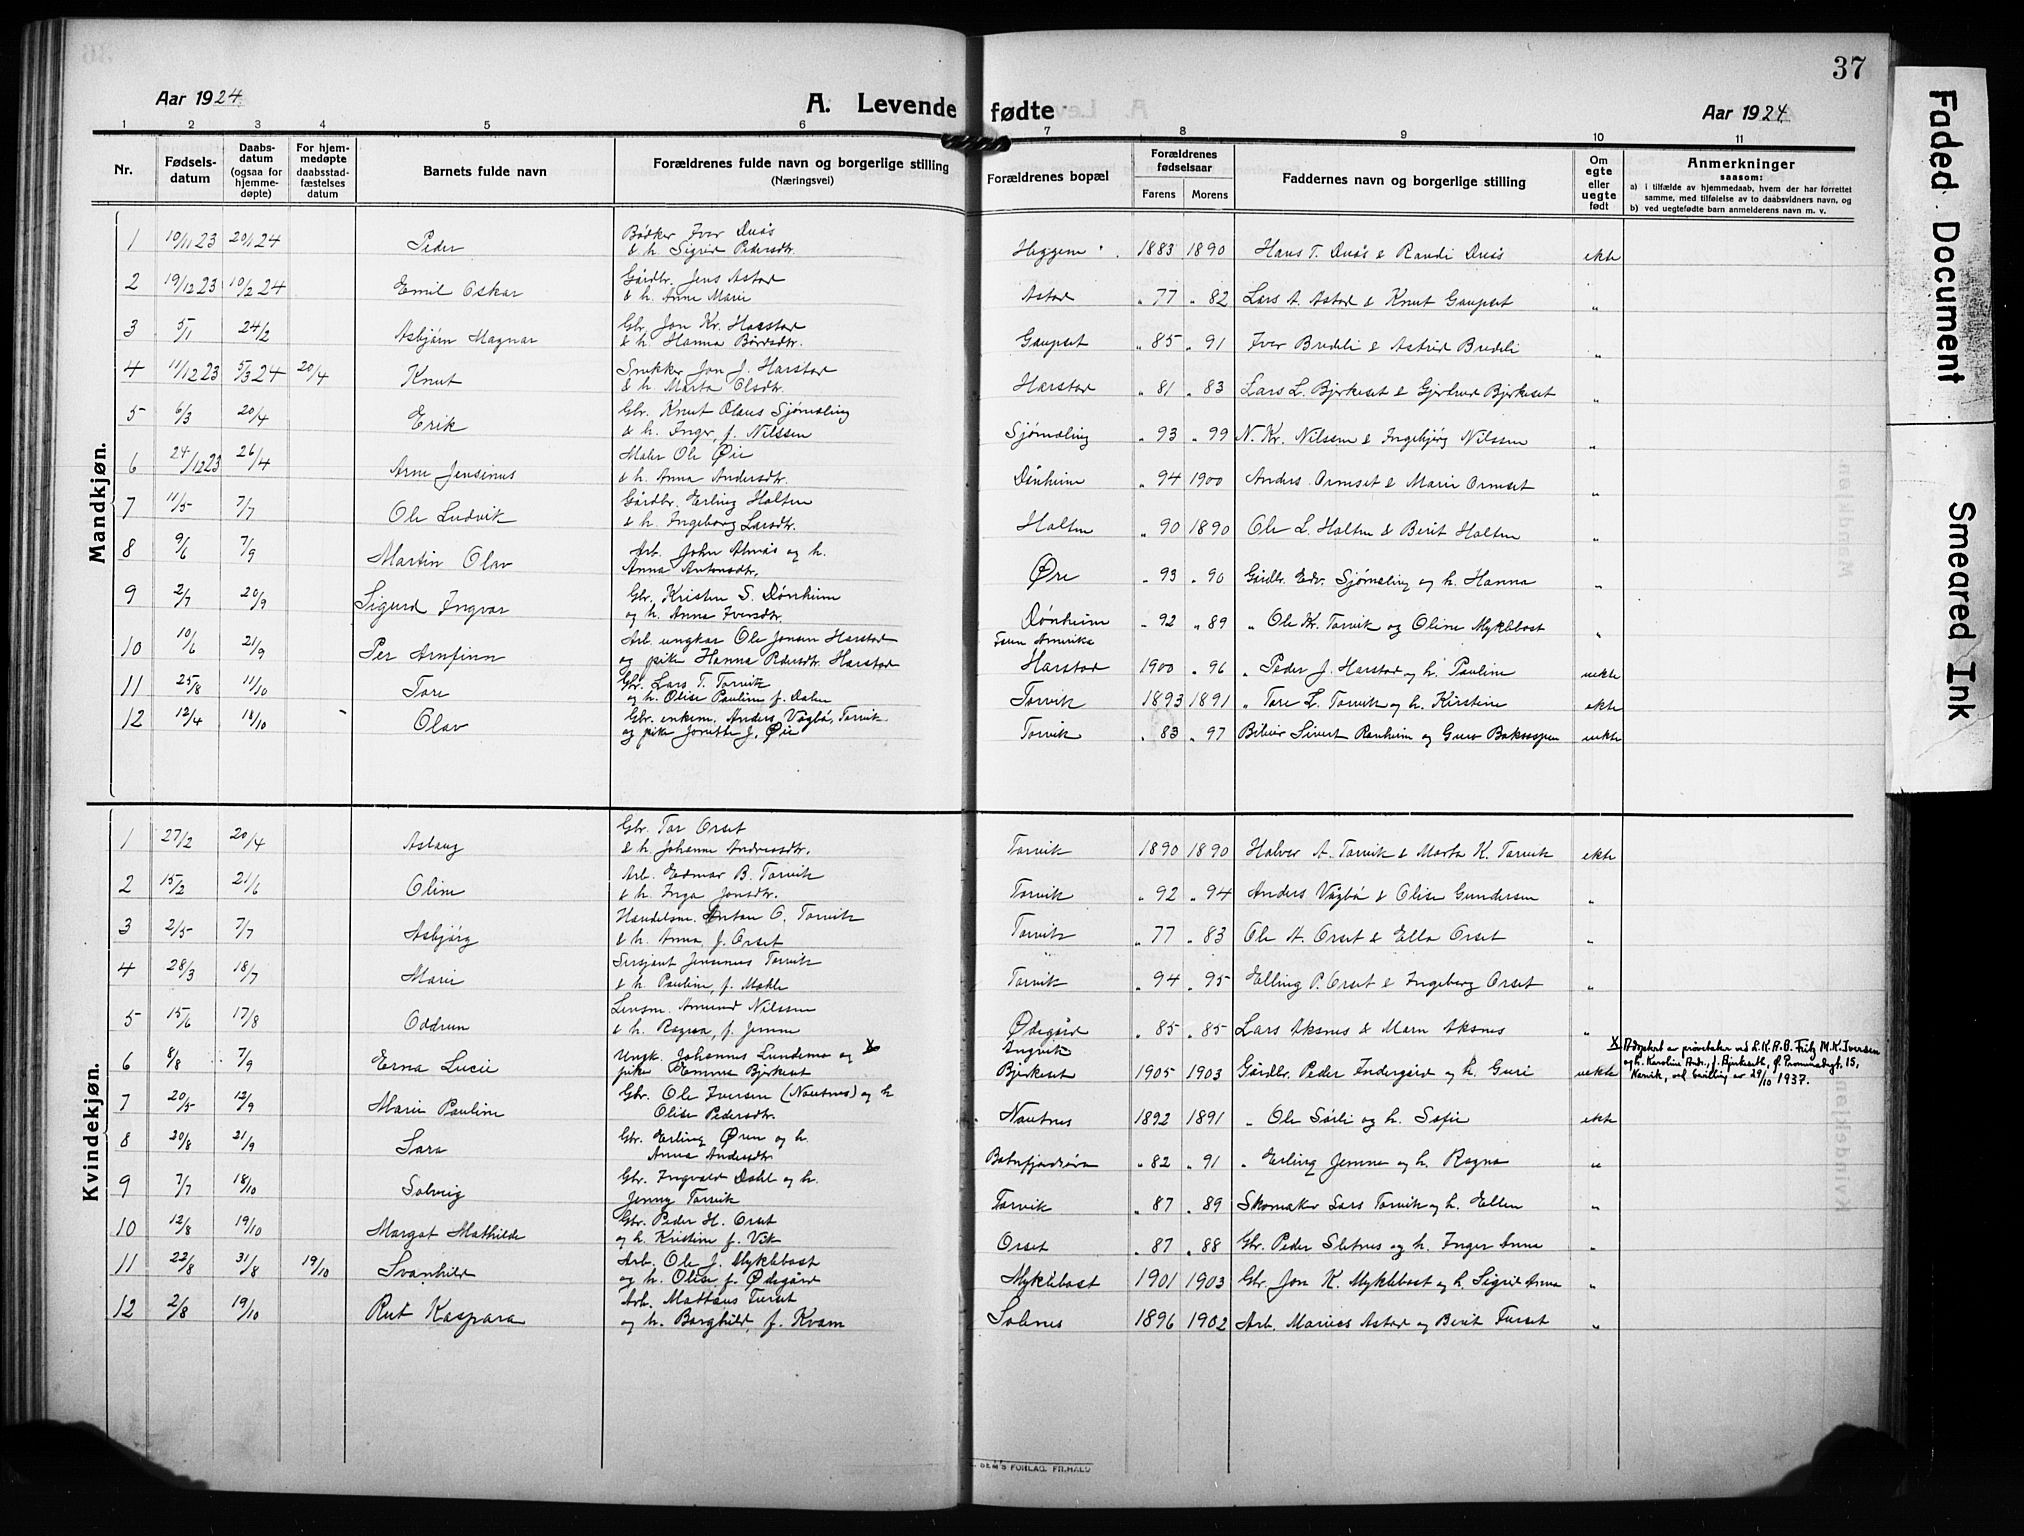 37
Aar 1924.
A. Levende fødte
Aar 1924.
1 2 3 4 5 6 7 8 9 10 11
Nr.
Fødsels-datum
Daabs-datum (ogsaa for hjemme-døpte)
For hjem-medøpte daabsstad-fæstelses datum
Barnets fulde navn
Forældrenes fulde navn og borgerlige stilling
(Næringsvei)
Forældrenes bopæl
Forældrenes fødselsaar
Farens Morens
Faddernes navn og borgerlige stilling
Om egte eller uegte født
Anmerkninger
saasom:
a) i tilfælde av hjemmedaab, hvem der har forrettet
samme, med tilføielse av to daabsvidners navn, og
b) ved uegtefødte barn anmelderens navn m. v.
Mandkjøn.
1 10/11 23 20/1 24 Peder Bødker Iver Duås & h. Sigrid Pedersdtr. Heggem 1883 1890 Hans T. Duås & Randi Duås ekte
2 19/12 23 10/2 24 Emil Oskar Gårdbr. Jens Astad & h. Anne Marie Astad " 77 " 82 Lars A. Astad & Knut Gaupset "
3 5/1 24/2 Asbjørn Magnar Gbr. Jon Kr. Harstad & h. Hanna Bårdsdtr. Gaupset " 85 " 91 Iver Bredeli & Astrid Bredeli "
4 11/12 23 5/3 24 20/4 Knut Snekker Jon J. Harstad & h. Marta Olsdtr. Harstad " 81 " 83 Lars L. Bjerkeset & Gjertrud Bjerkeset "
5 6/3 20/4 Erik Gbr. Knut Olaus Sjømæling & h. Inger, f. Nilssen Sjømæling " 93 " 99 N. Kr. Nilssen & Ingebjørg Nilssen "
6 24/12 23 26/4 Arne Jensinus Maler Ole Øie & h. Anna Andersdtr. Dønheim " 94 1900 Anders Ormset & Marie Ormset "
7 11/5 7/7 Ole Ludvik Gårdbr. Erling Holten & h. Ingeborg Larsdtr. Holten " 90 1890 Ole L. Holten & Berit Holten "
8 9/6 7/9 Martin Olav Arb. John Almås og h. Anna Antonsdtr. Øre " 93 " 90 Gårdbr. Edv. Sjømæling og h. Hanna "
9 2/7 20/9 Sigurd Ingvar Gbr. Kristen S. Dønheim og h. Anna Iversdtr. Dønheim " 92 " 89 " Ole Kr. Torvik og Oline Myklebost "
10 10/6 21/9 Per Arnfinn Arb. ungkar Ole Jonsen Harstad og pike Hanna Pedersdtr. Harstad Amerika Harstad 1900 " 96 " Peder J. Harstad og h. Pauline uekte
11 25/8 11/10 Tore Gbr. Lars T. Torvik og h. Olise Pauline f. Dalen Torvik 1893 1891 " Tore L. Torvik og h. Kirstine ekte
12 12/4 18/10 Olav Gbr. enkem. Anders Vågbø, Torvik og pike Jonette J. Øie Torvik " 83 " 97 Sivert Ranheim og Guro uekte
Kvindekjøn.
1 27/2 20/4 Aslaug Gbr. Tor Orset & h. Johanne Andreasdtr. Torvik 1890 1890 Halvor A. Torvik & Marta K. Torvik ekte
2 15/2 21/6 Oline Arb. Edmar B. Torvik & h. Inga Jonsdtr. Torvik " 92 " 94 Anders Vågbø & Olise Gundersen "
3 2/5 7/7 Asbjørg Handelsm. Anton O. Torvik & h. Anna, f. Orset Torvik " 77 " 83 Ole A. Orset & Ella Orset "
4 28/3 18/7 Marie Sersjant Jensenius Torvik & h. Pauline, f. Mæhle Torvik " 94 " 95 Elling P. Orset & Ingeborg Orset "
5 15/6 17/8 Oddrun Lensm. Amund Nilssen & h. Ragna, f. Jemne Ødegård " 85 " 85 Lars Aksnes & Marn Aksnes "
6 8/8 7/9 Erna Lucie Ungk. Johannes Lundemo og X pike Emma Bjerkeset Angvik Bjerkeset 1905 1903 Gårdbr. Peder Indergård og h. Guri uekte X Adoptert av prøvetaker ved L.K.A.B. Fritz M.K. Iversen og h. Karoline f. Bjerkseth, 15, Narvik, ved bevilling av 29/10 1937.
7 20/5 12/9 Marie Pauline Gbr. Ole Iversen (Nautnes) og h Olise Pedersdtr. Nautnes 1892 1891 " Ole Sørli og h. Sofie ekte
8 20/8 21/9 Sara Gbr. Erling Øren og h. Anna Andersdtr. Batnfjordsøra " 82 " 91 " Erling Jemne og h. Ragna "
9 7/7 18/10 Solveig Gbr. Ingvald Dahl og h. Jenny Torvik Torvik " 87 " 89 Skomaker Lars Torvik og h. Ellen "
10 12/8 19/10 Margot Mathilde Gbr. Peder H. Orset og h. Kristine f. Vik Orset " 87 " 88 Gbr. Peder Sletnes og h. Inger Anna "
11 22/8 31/8 19/10 Svanhild Arb. Ole J. Myklebost og h. Olise, f. Ødegård Myklebost 1901 1903 Gbr. Jon K. Myklebost og h. Sigrid Anna "
12 2/8 19/10 Rut Kaspara Arb. Mattæus Furset og h. Borghild, f. Kvam Solsnes 1896 1902 Arb. Marius Astad og Berit Furset "
FORLAG. FR.HALD
Faded Document
Smeared Ink